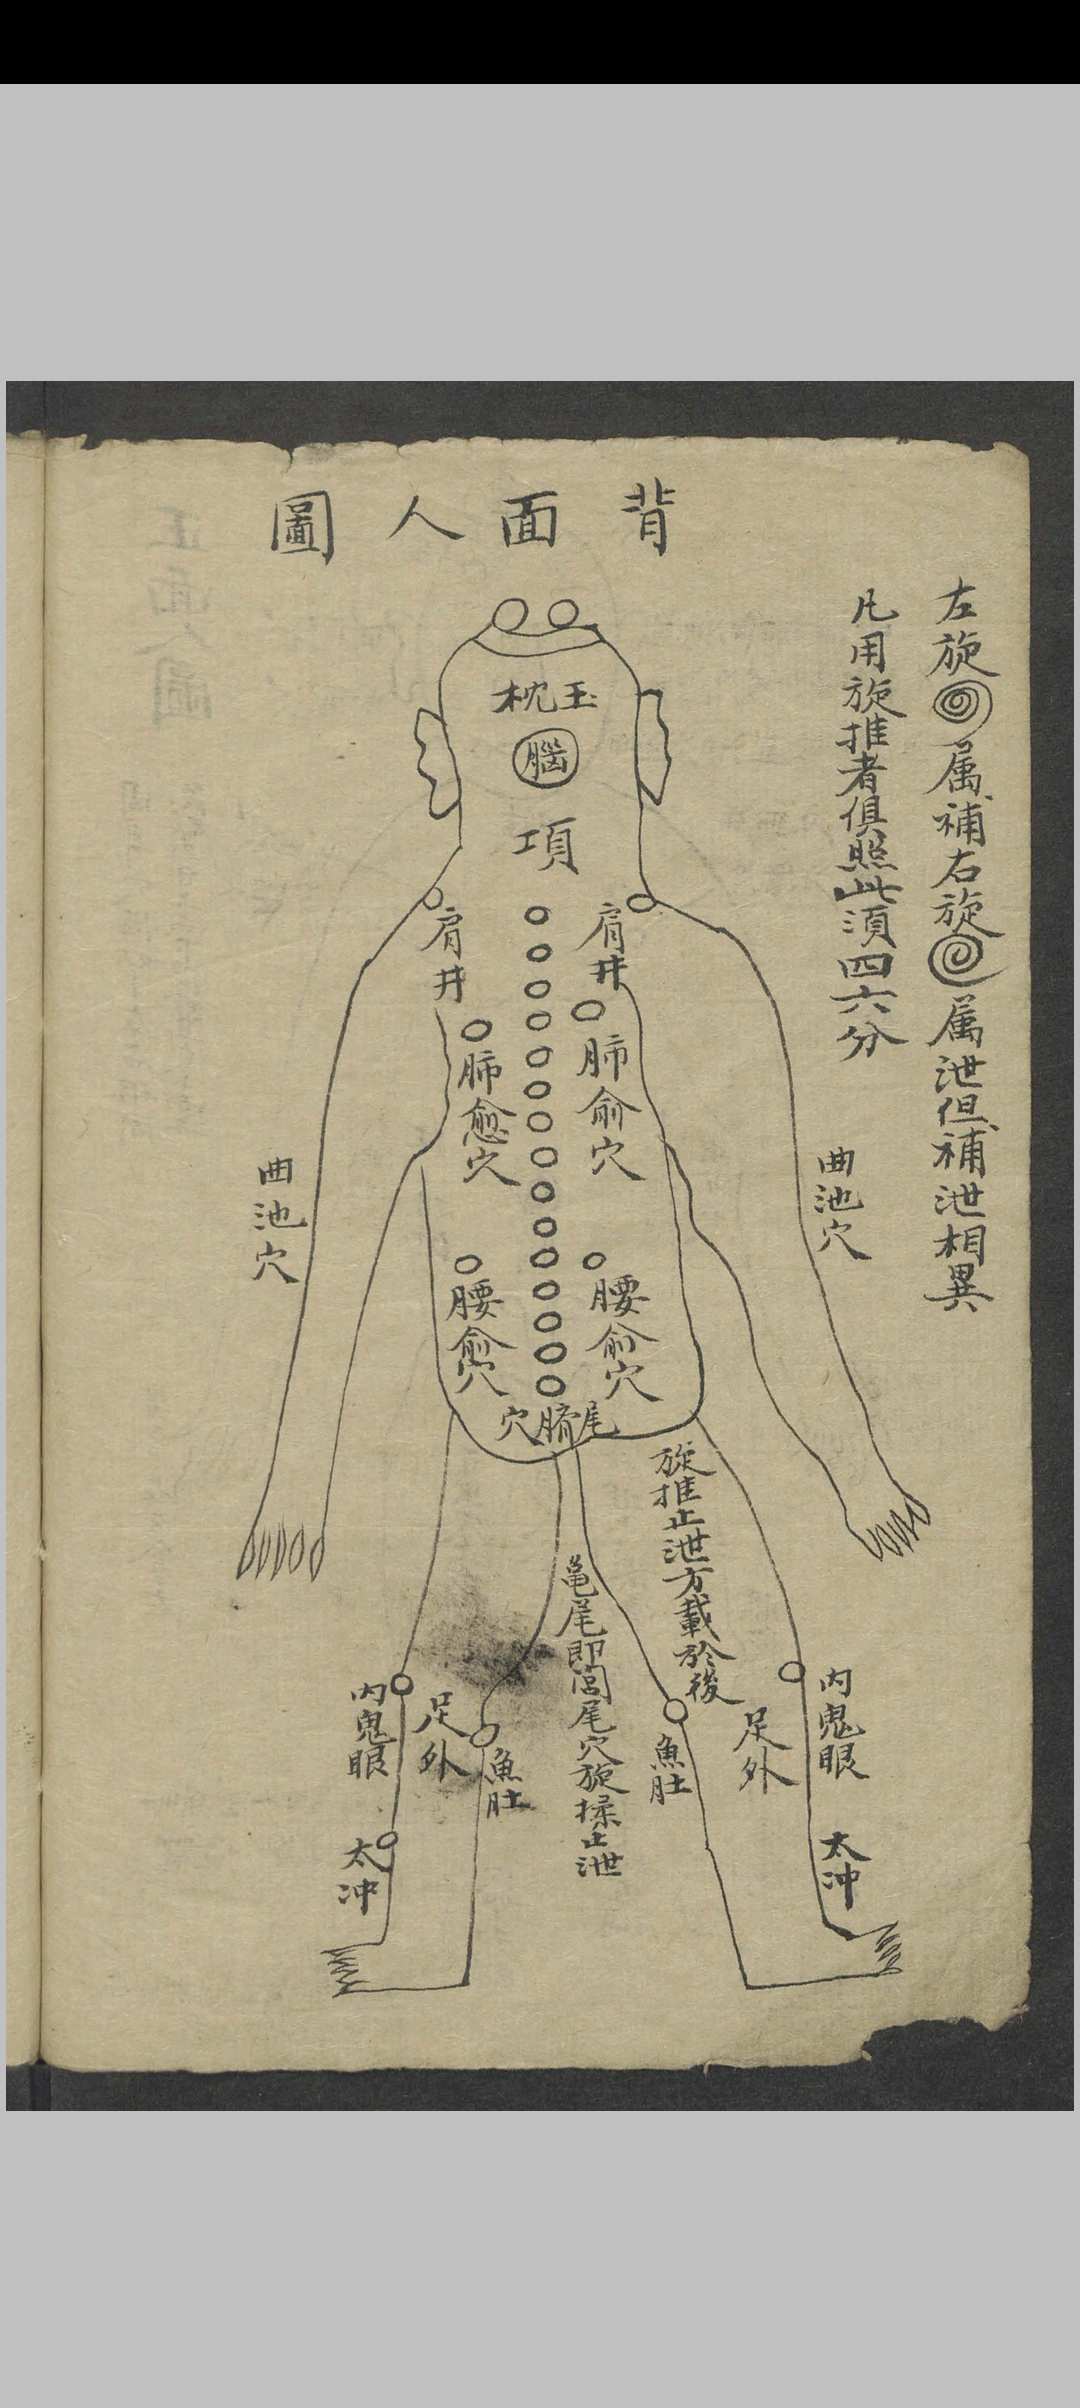 背面人圖
左旋属補右旋属泄但補泄相異
凡用旋推者俱照此須四六分
玉枕
腦
項
肩井
肩井
肺俞穴
肺愈穴
曲池穴
曲池穴
腰俞穴
腰愈穴
尾膌穴
旋推止泄方載於後
亀尾即閭尾穴旋揉止泄
内鬼眼
足外
魚肚
魚肚
足外
内鬼眼
太冲
太冲